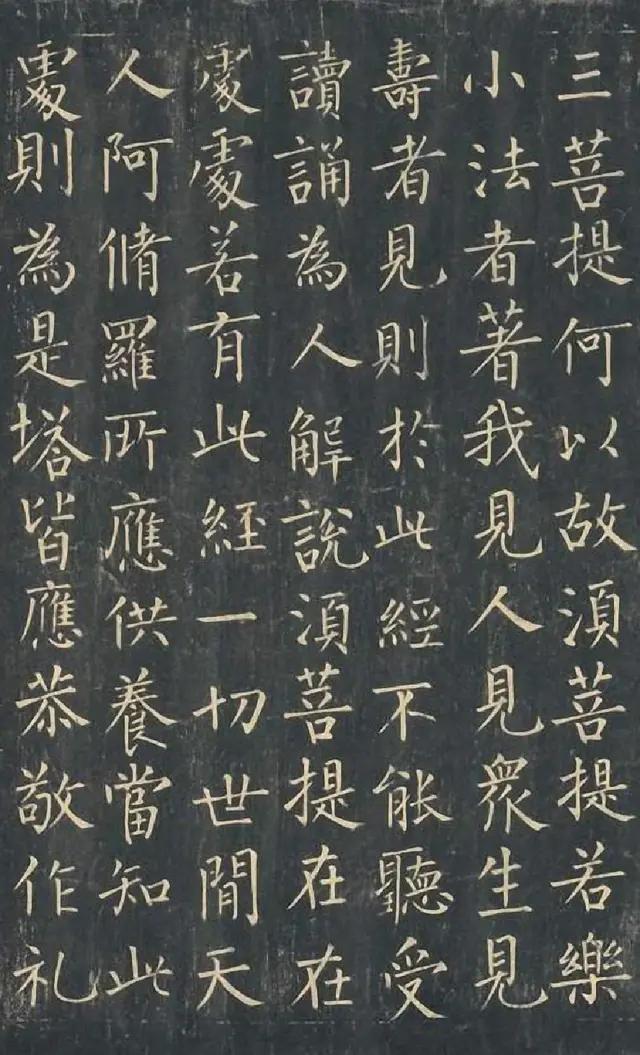 三菩提何以故湏菩提若樂
小法者著我見人見眾生見
壽者見則於此經不能聽受
讀誦為人解說湏菩提在在
處處若有此経一切世閒天
人阿脩羅所應供養當知此
處則為是塔皆應恭敬作礼